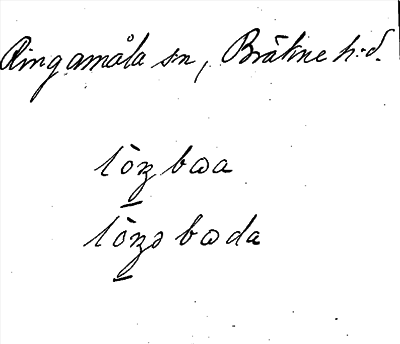 Ringamåla sn, Bräkne h:d.
lòŋ bωa
lòŋə bωda